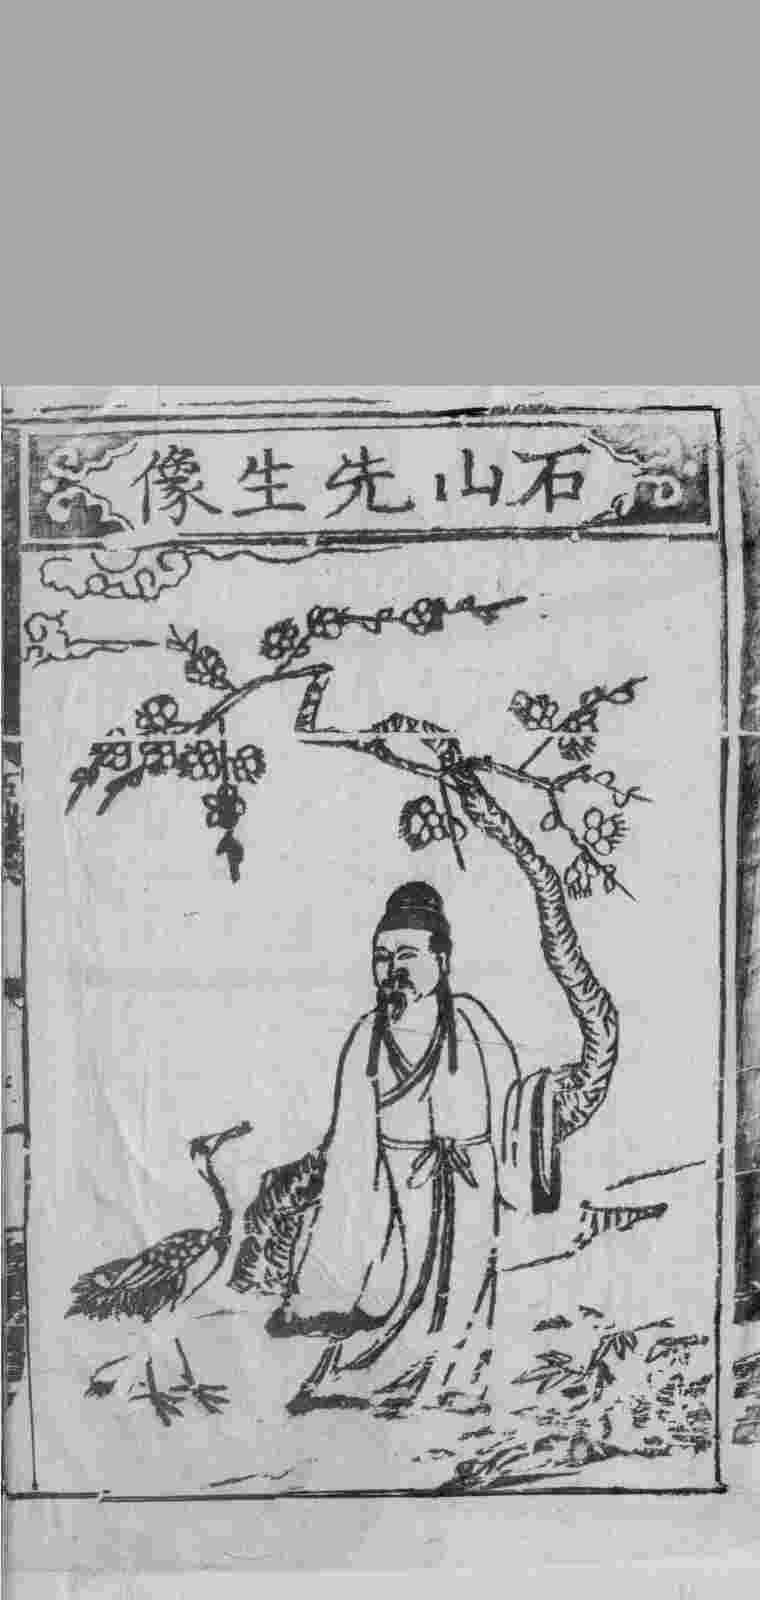 石山先生像